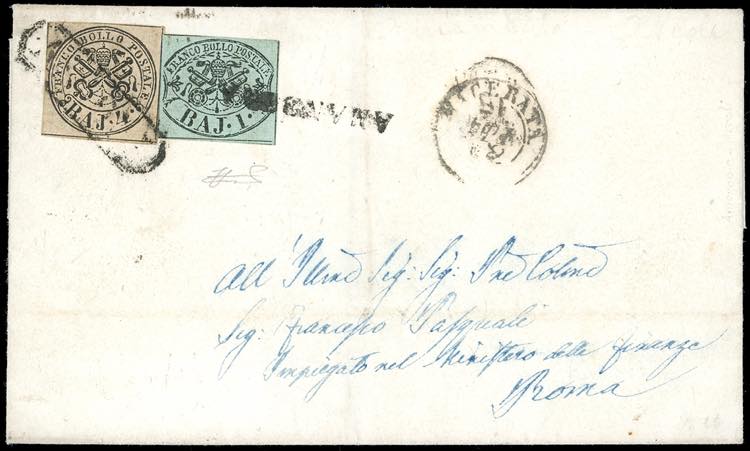 FRANCO BOLLO POSTALE
BAJ. 4.
FRANCO BOLLO POSTALE
BAJ. 1.
MACERATA
All' Illmo Sig: Sig: Pne Colmo
Sig: Francesco Pasquali
Impiegato nel Ministero delle finanze
Roma